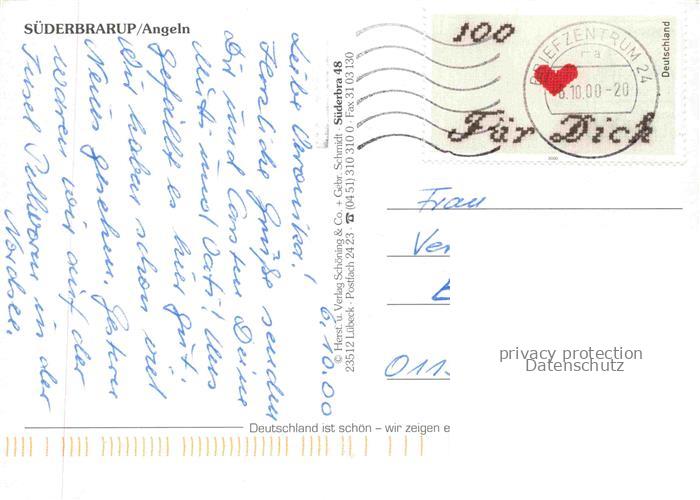 SÜDERBRARUP/Angeln
6.10.00
Liebe Veronika!
Herzliche Grüße senden
Dir und Carsten Deine
Mutti und Vati! Uns
gefällt es hier gut.
Wir haben schon viel
Neues gesehen. Gestern
waren wir auf der
Insel Pellworm in der
Nordsee.
© Herst. u. Verlag Schöning & Co. + Gebr. Schmidt · Süderbra 48
23512 Lübeck · Postfach 24 23 · ☎ (04 51) 310 310 0 · Fax 31 03 130
100
Deutschland
Für Dich
2000
BRIEFZENTRUM 24
ma
6.10.00-20
Frau
Ver
011
privacy protection
Datenschutz
Deutschland ist schön – wir zeigen e